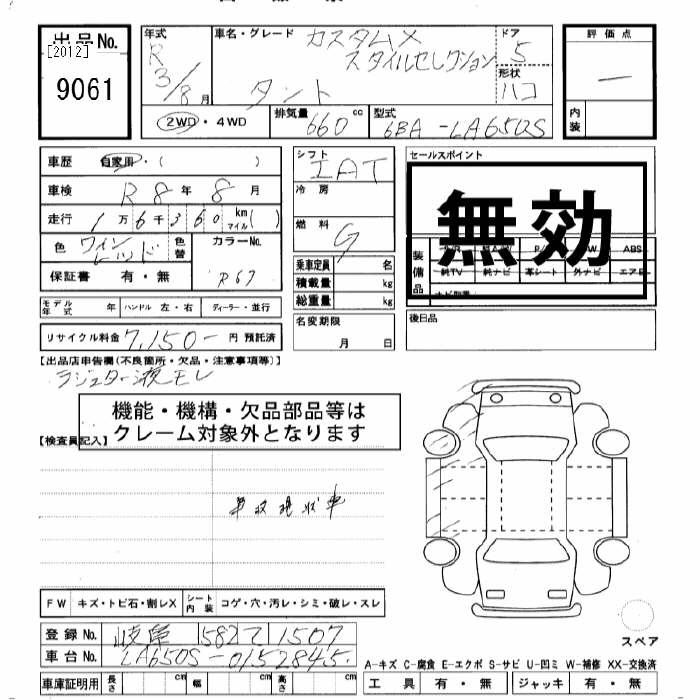 出品No.
[2012]
9061
年式
R
3/8 月
車名・グレード
カスタムX
スタイルセレクション
タント
ドア
5
形状
ハコ
評価点
―
内装
2WD・4WD
排気量 660 cc
型式 6BA-LA650S
車歴 自家用・( )
車検 R8年8月
走行 1万6千360 km マイル( )
色 ワインレッド 色替
カラーNo.
R67
保証書 有・無
モデル年式 年 ハンドル 左・右 ディーラー・並行
リサイクル料金 7,150- 円 預託済
シフト
IAT
冷房
燃料
G
乗車定員 名
積載量 kg
総重量 kg
名変期限
月 日
セールスポイント
無効
装備品
ABS
純TV 純ナビ 革シート 外ナビ
後日品
【出品店申告欄(不良箇所・欠品・注意事項等)】
ラジエター液モレ
機能・機構・欠品部品等は
クレーム対象外となります
【検査員記入】
車収現状車
FW キズ・トビ石・割レX シート内装 コゲ・穴・汚レ・シミ・破レ・スレ
登録No. 岐阜 582て1507
車台No. LA650S-0152845
車庫証明用 長さ cm 幅 cm 高さ cm
スペア
A-キズ C-腐食 E-エクボ S-サビ U-凹ミ W-補修 XX-交換済
工具 有・無 ジャッキ 有・無